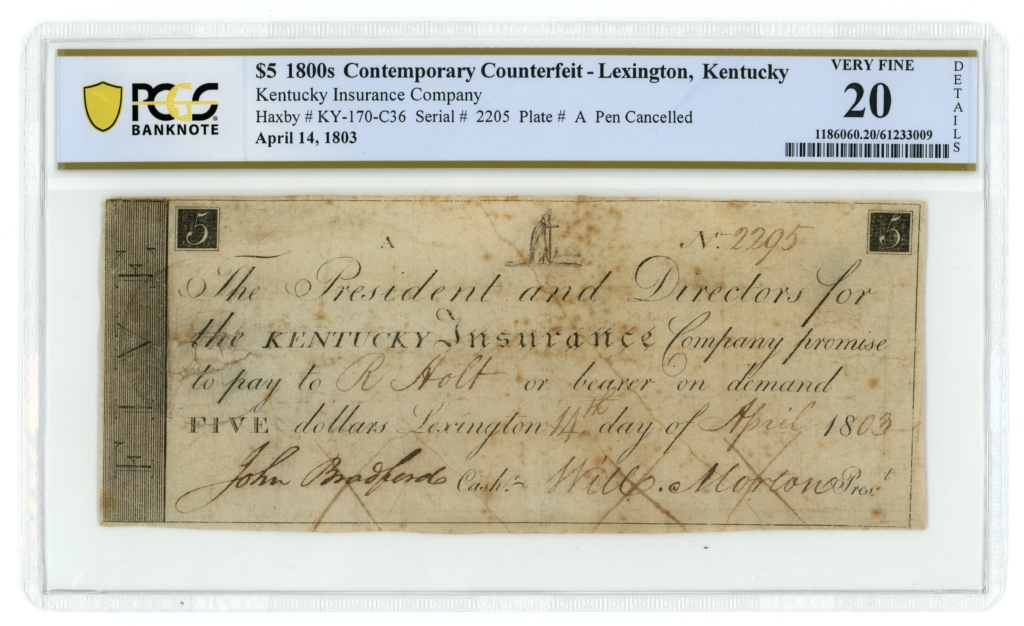 $5 1800s Contemporary Counterfeit - Lexington, Kentucky
Kentucky Insurance Company
Haxby # KY-170-C36 Serial # 2205 Plate # A Pen Cancelled
April 14, 1803
PCGS
BANKNOTE
VERY FINE
20
1186060.20/61233009
DETAILS
5
A
No. 2295
5
FIVE
The President and Directors for
the KENTUCKY Insurance Company promise
to pay to R Holt or bearer on demand
FIVE dollars Lexington 14th day of April 1803
John Bradford Cashr. Will. Morton Prest.